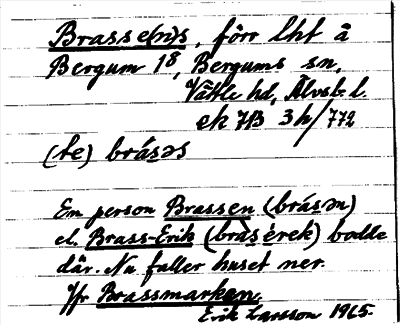 Brasse(n)s, förr lht å
Bergum 1⁸, Bergums sn,
Vättle hd, Älvsb. l.
ek 7B 3h/772
(be) brásəs
En person Brassen (brásən)
el. Brass-Erik (brásèrek) bodde
där. Nu faller huset ner.
Jfr Brassmarken.
Erik Larsson 1965.